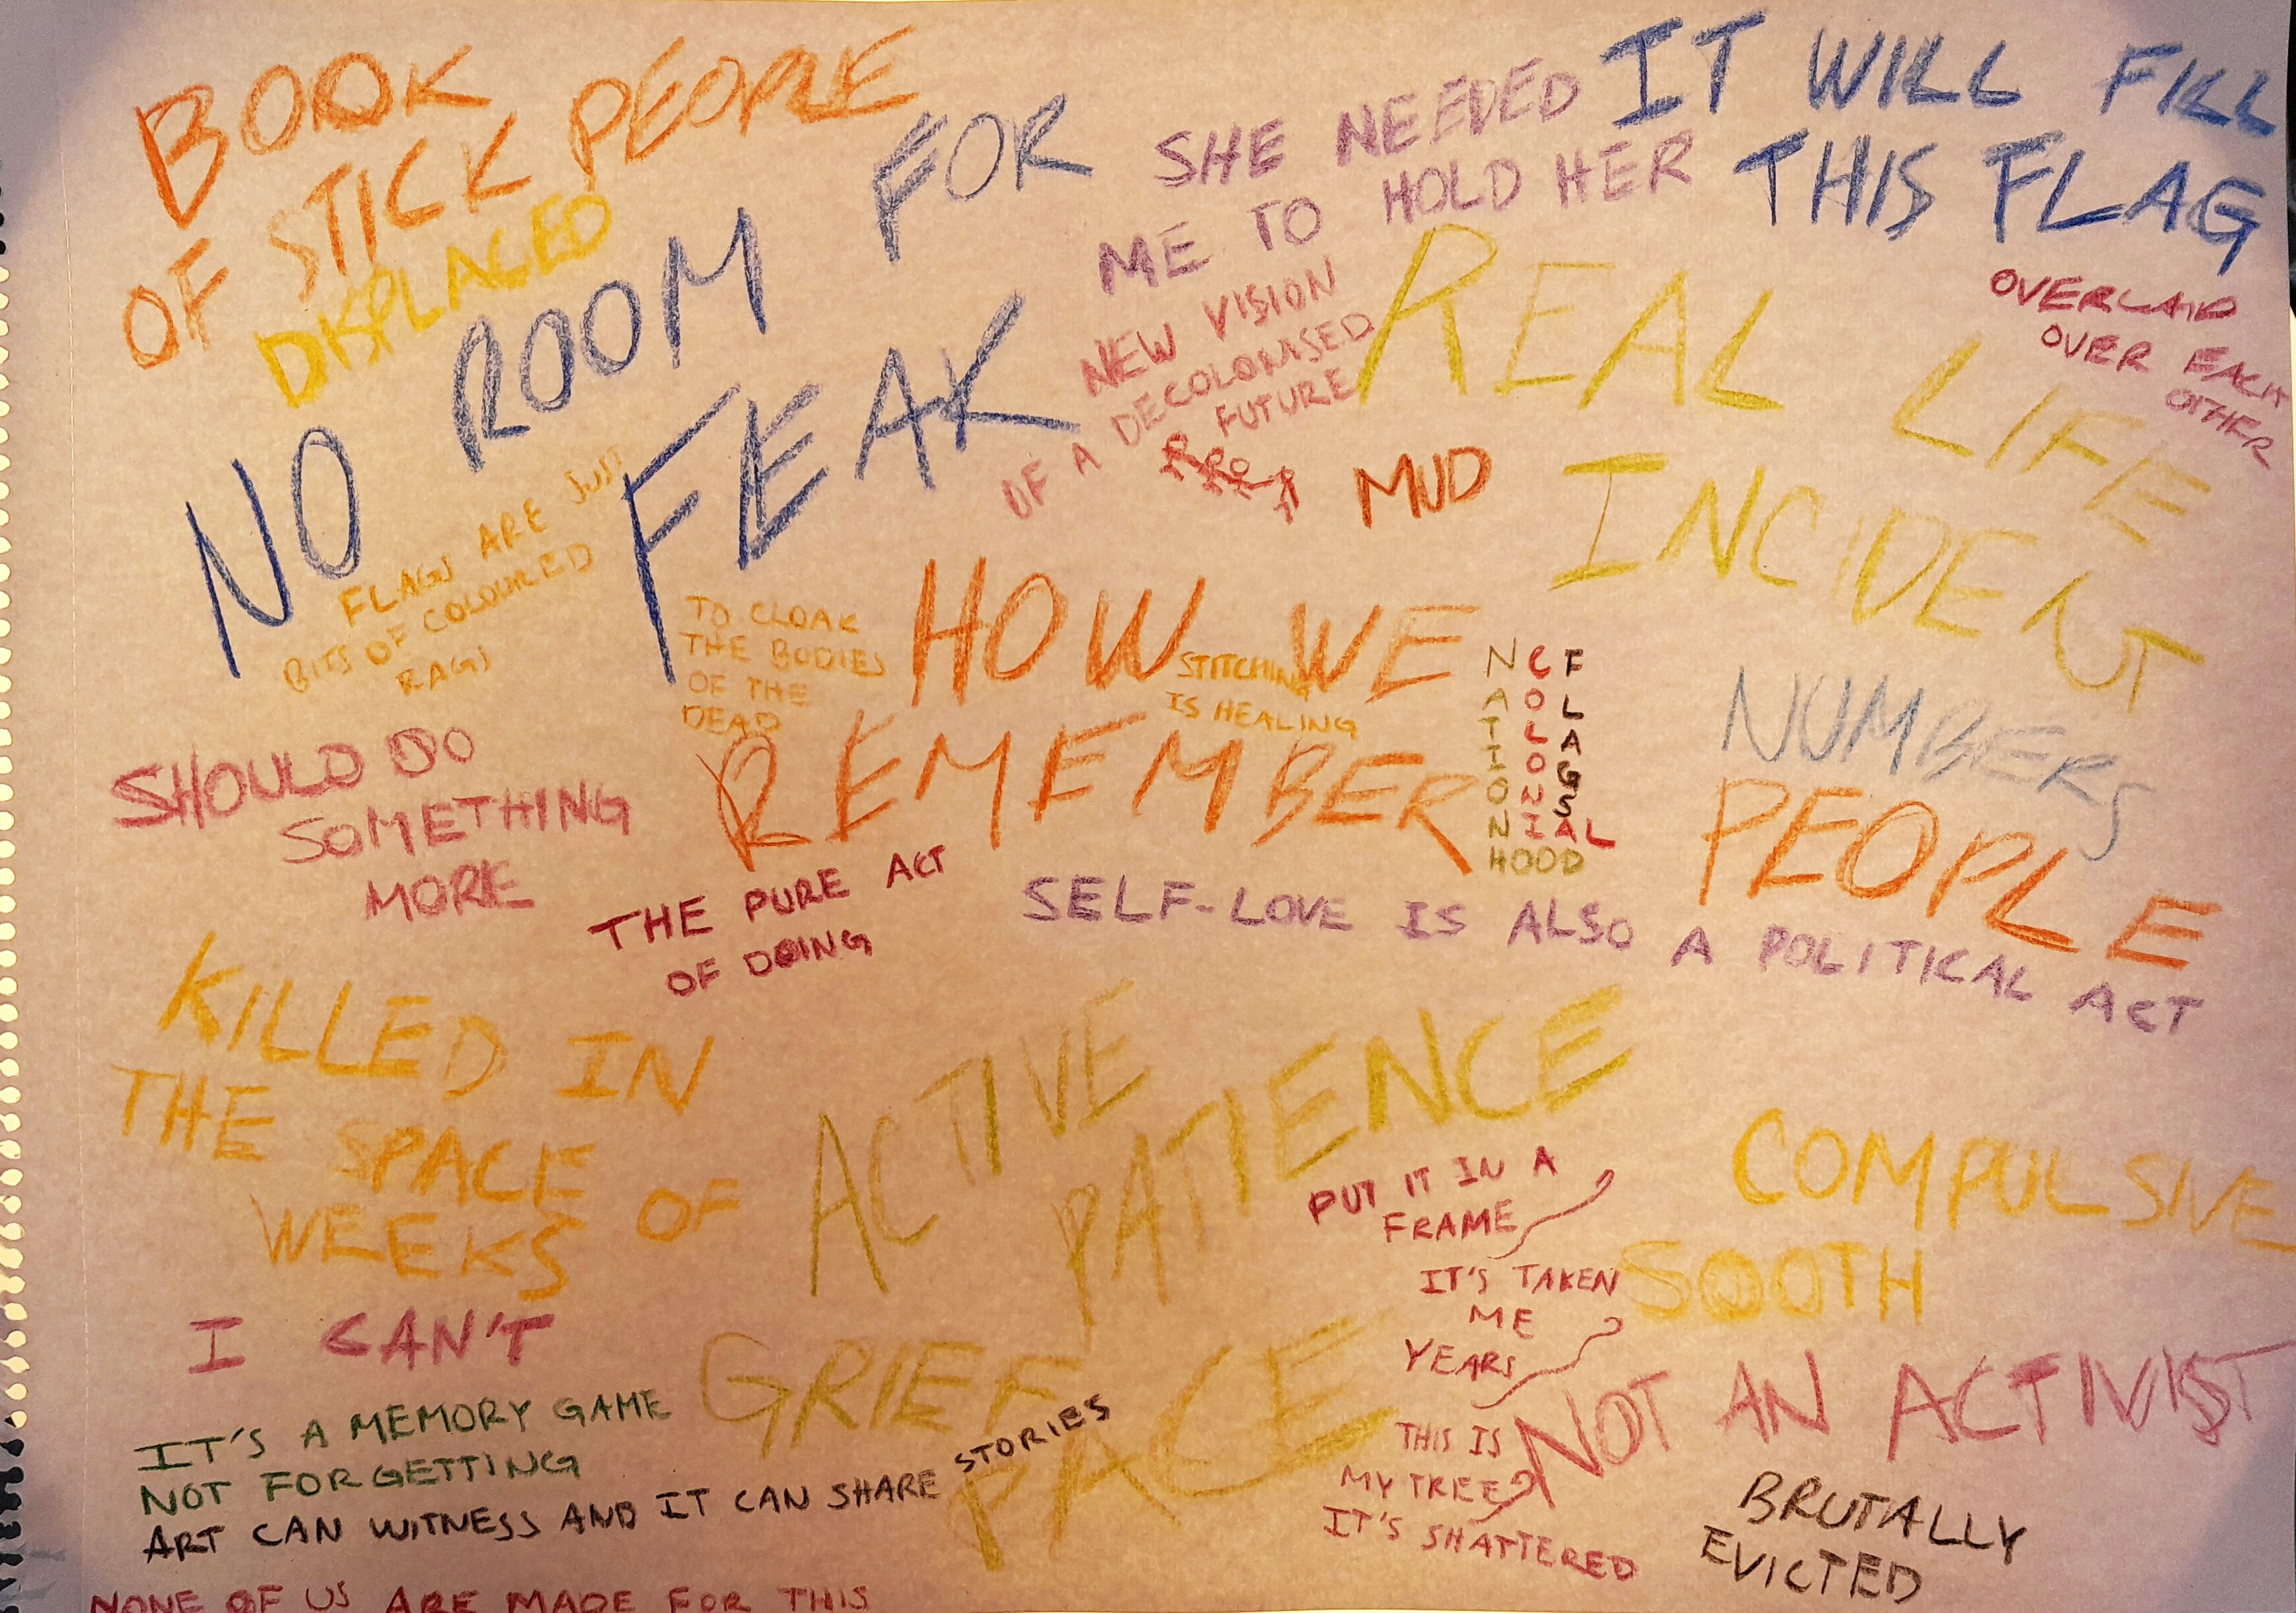 BOOK
OF STICK PEOPLE
DISPLACED
NO ROOM FOR
FEAR
SHE NEEDED
ME TO HOLD HER
IT WILL FILL
THIS FLAG
NEW VISION
OF A DECOLONISED
FUTURE
MUD
REAL LIFE
INCIDENT
OVERLAID
OVER EACH
OTHER
FLAGS ARE JUST
BITS OF COLOURED
RAGS
TO CLOAK
THE BODIES
OF THE
DEAD
HOW WE
REMEMBER
STITCHING
IS HEALING
NATIONHOOD
COLONIAL
FLAGS
NUMBERS
PEOPLE
SHOULD DO
SOMETHING
MORE
THE PURE ACT
OF DOING
SELF-LOVE IS ALSO A POLITICAL ACT
KILLED IN
THE SPACE OF
WEEKS
ACTIVE
PATIENCE
PUT IT IN A
FRAME
IT'S TAKEN
ME
YEARS
THIS IS
MY TREE
IT'S SHATTERED
COMPULSIVE
SOOTH
I CAN'T
GRIEF
PACE
NOT AN ACTIVIST
IT'S A MEMORY GAME
NOT FORGETTING
ART CAN WITNESS AND IT CAN SHARE STORIES
BRUTALLY
EVICTED
NONE OF US ARE MADE FOR THIS